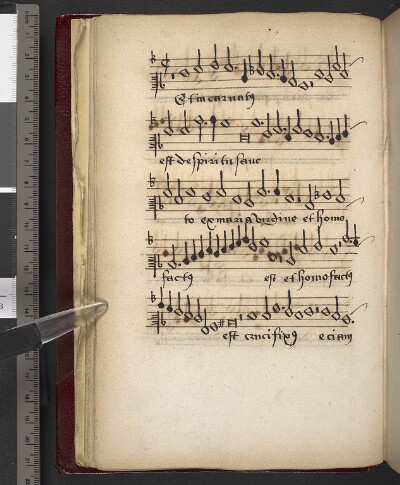 Et incarnatꝰ
est de spiritu sanc
to ex maria virgine et homo
factꝰ est et homo factꝰ
est crucifixꝰ eciam